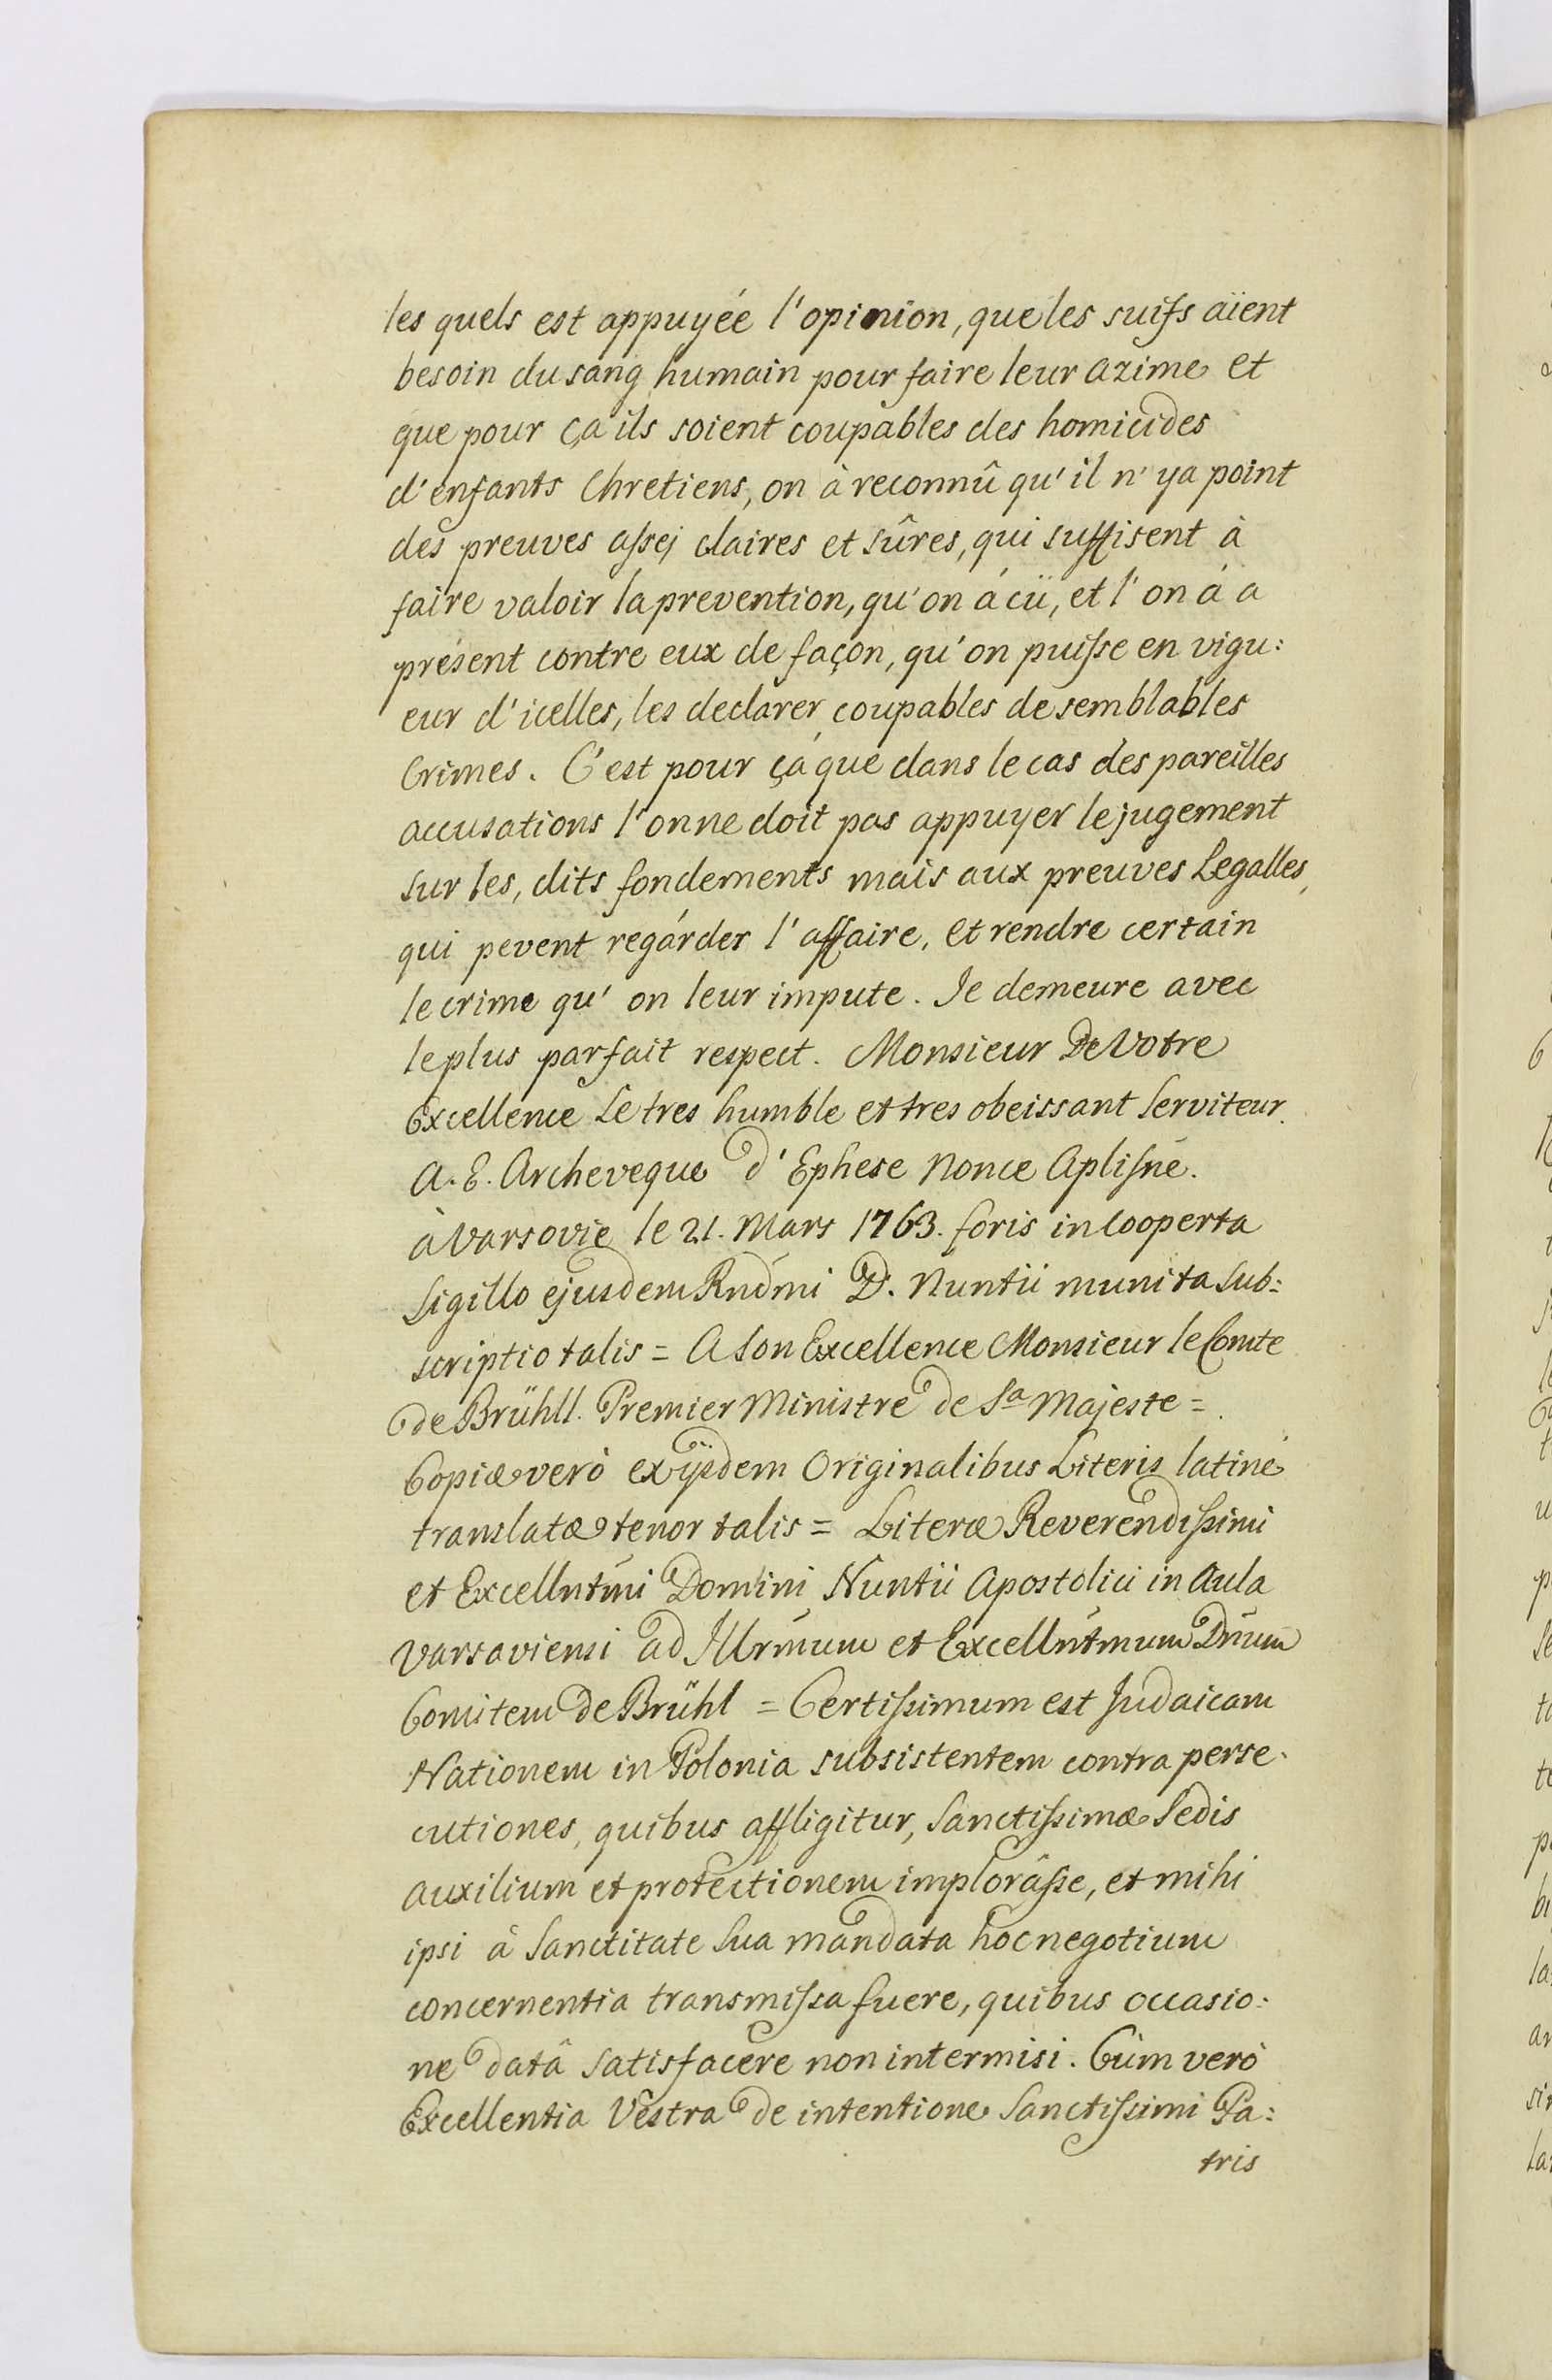 les quels est appuyée l'opinion, que les suifs aïent
besoin du sang humain pour faire leur azime et
que pour ça ils soient coupables des homicides
d'enfants Chretiens, on à reconnû qu'il n'ya point
des preuves assej claires et sûres, qui suffisent à
faire valoir la prevention, qu'on á cü, et l'on á a
présent contre eux de façon, qu'on puisse en vigu:
eur d'icelles, les declarer coupables de semblables
Crimes. C'est pour çá que dans le cas des pareilles
accusations l'on ne doit pas appuyer le jugement
sur les, dits fondements mais aux preuves Legalles,
qui pevent regárder l'affaire, et rendre certain
le crime qu'on leur impute. Je demeure avec
le plus parfait respect. Monsieur De Votre
Excellence Le tres humble et tres obeissant Serviteur.
A. E. Archeveque d'Ephese Nonce Aplisne.
à Varsovie le 21. Mars 1763. foris in Cooperta
Sigillo ejusdem Rndmi D. Nuntii munita Sub:
scriptio talis = A Son Excellence Monsieur le Comte
de Brühll. Premier Ministre de Sa Majeste =
Copiæ verò ex ijsdem Originalibus Literis latinè
translatæ tenor talis = Literæ Reverendissimi
et Excellntmi Domini Nuntii Apostolici in Aula
Varsaviensi ad Illrmum et Excellntmum Dnum
Comitem De Brühl = Certissimum est Judaicam
Nationem in Polonia subsistentem contra perse:
cutiones, quibus affligitur, Sanctissimæ Sedis
auxilium et protectionem implorâsse, et mihi
ipsi à Sanctitate Sua mandata hoc negotium
concernentia transmissa fuere, quibus occasio:
ne datâ satisfacere non intermisi. Cùm verò
Excellentia Vestra de intentione Sanctissimi Pa:
tris